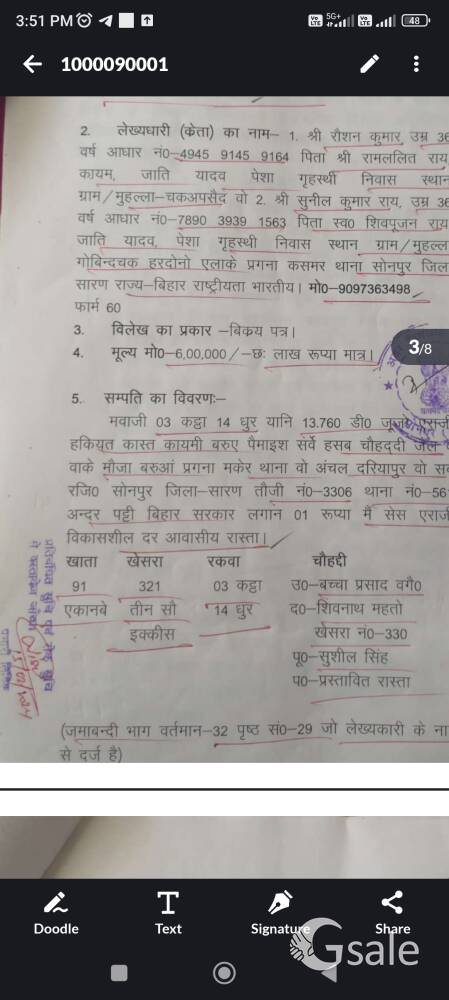 3:51 PM
5G+
48
1000090001
2. लेख्यधारी (केता) का नाम– 1. श्री रौशन कुमार, उम्र 36
वर्ष आधार नं0–4945 9145 9164 पिता श्री रामललित राय,
कायम, जाति यादव पेशा गृहस्थी निवास स्थान
ग्राम/मुहल्ला–चकअपसैद वो 2. श्री सुनील कुमार राय, उम्र 36
वर्ष आधार नं0–7890 3939 1563 पिता स्व0 शिवपूजन राय
जाति यादव, पेशा गृहस्थी निवास स्थान ग्राम/मुहल्ल
गोबिन्दचक हरदोनो एलाके प्रगना कसमर थाना सोनपुर जिल
सारण राज्य–बिहार राष्ट्रीयता भारतीय। मो0–9097363498
फार्म 60
3. विलेख का प्रकार –बिकय पत्र।
4. मूल्य मो0–6,00,000/–छः लाख रूप्या मात्र।
3/8
5. सम्पति का विवरणः–
मवाजी 03 कट्ठा 14 धुर यानि 13.760 डी0 जूजे एराजी
हकियत कास्त कायमी बरुए पैमाइश सर्वे हसब चौहद्दी जैल
वाके मौजा बरुआं प्रगना मकेर थाना वो अंचल दरियापुर वो सब
रजि0 सोनपुर जिला–सारण तौजी नं0–3306 थाना नं0–56
अन्दर पट्टी बिहार सरकार लगान 01 रूप्या मै सेस एराजी
विकासशील दर आवासीय रास्ता।
खाता खेसरा रकवा चौहद्दी
91 321 03 कट्ठा उ0–बच्चा प्रसाद वगै0
एकानबे तीन सौ 14 धुर द0–शिवनाथ महतो
इक्कीस खेसरा नं0–330
पू0–सुशील सिंह
प0–प्रस्तावित रास्ता
(जमाबन्दी भाग वर्तमान–32 पृष्ठ सं0–29 जो लेख्यकारी के ना
से दर्ज है)
Doodle
Text
Signature
Share
Gsale